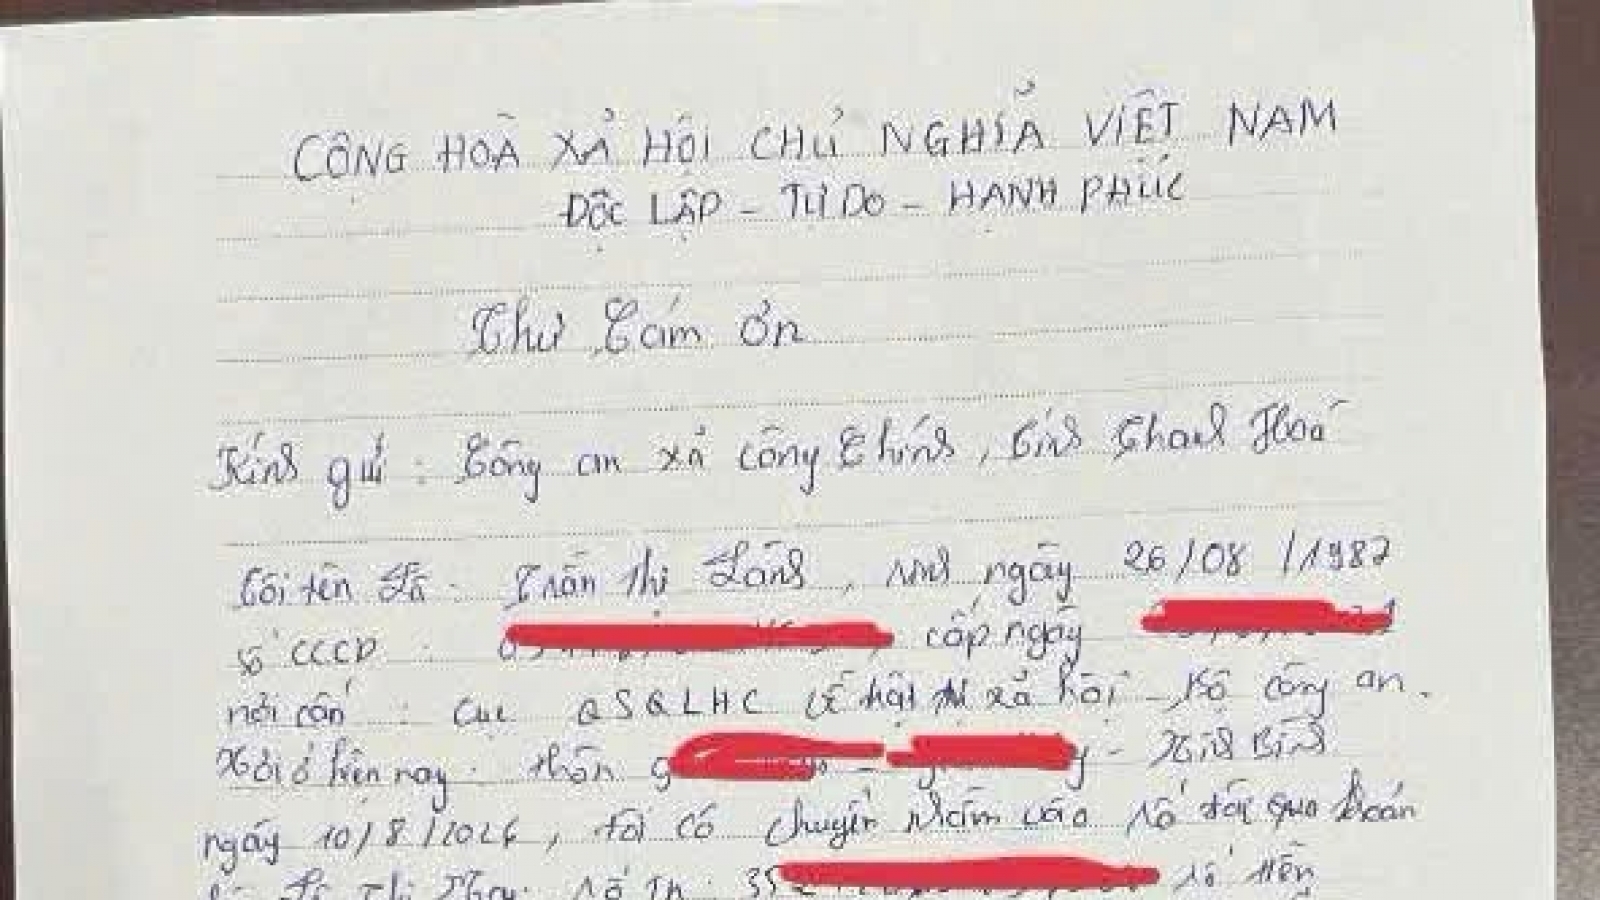 CỘNG HOÀ XẢ HỘI CHỦ NGHĨA VIỆT NAM
ĐỘC LẬP - TỰ DO - HẠNH PHÚC
Thư Cám ơn
Kính gửi : Công an xả công Chính, tỉnh Thanh Hoá
Tôi tên là : Trần Thị Lánh, sinh ngày 26/08/1987
số CCCD : cấp ngày
nơi cấp : Cục QSQLHC về trật tự xả hội - Bộ công an.
Nơi ở hiện nay : thôn - Ninh Bình
ngày 10/8/2026, tôi có chuyển nhầm vào số tài qua khoản
số TK : 35 số tiền